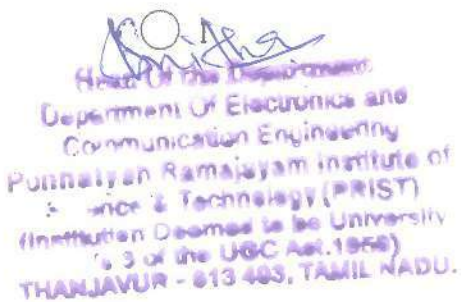 Anitha
Head Of the Department
Department Of Electronics and
Communication Engineering
Ponnaiyah Ramajayam Institute of
Science & Technology (PRIST)
(Institution Deemed to be University
s 3 of the UGC Act.1956)
THANJAVUR - 613 403, TAMIL NADU.